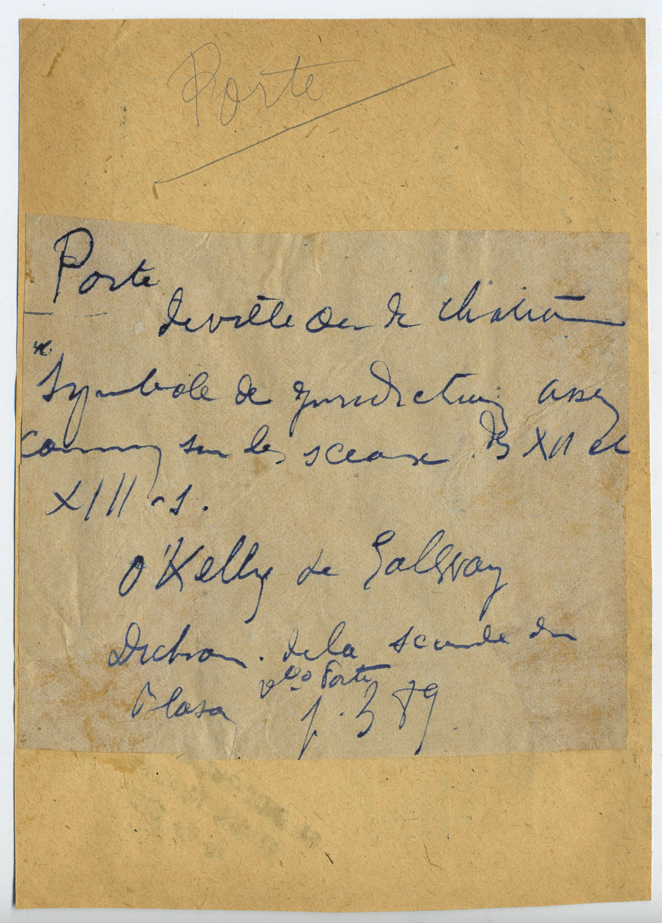 Porte
Porte
de ville ou de château
"Symbole de juridiction assez
connu sur les sceaux des XII et
XIII es.
O'Kelly de Galway
Diction. de la science du
Blason vo Porte p. 389